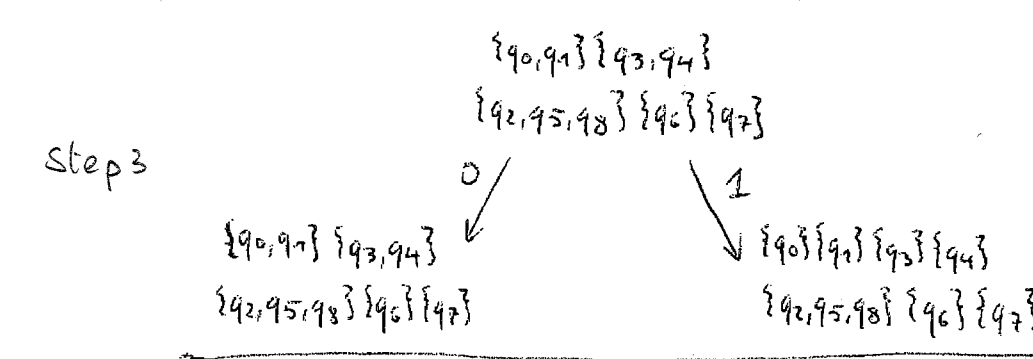 {q0,q1}{q3,q4}
{q2,q5,q8}{q6}{q7}
Step3
0
1
{q0,q1} {q3,q4}
{q2,q5,q8}{q6}{q7}
{q0}{q1}{q3}{q4}
{q2,q5,q8} {q6}{q7}